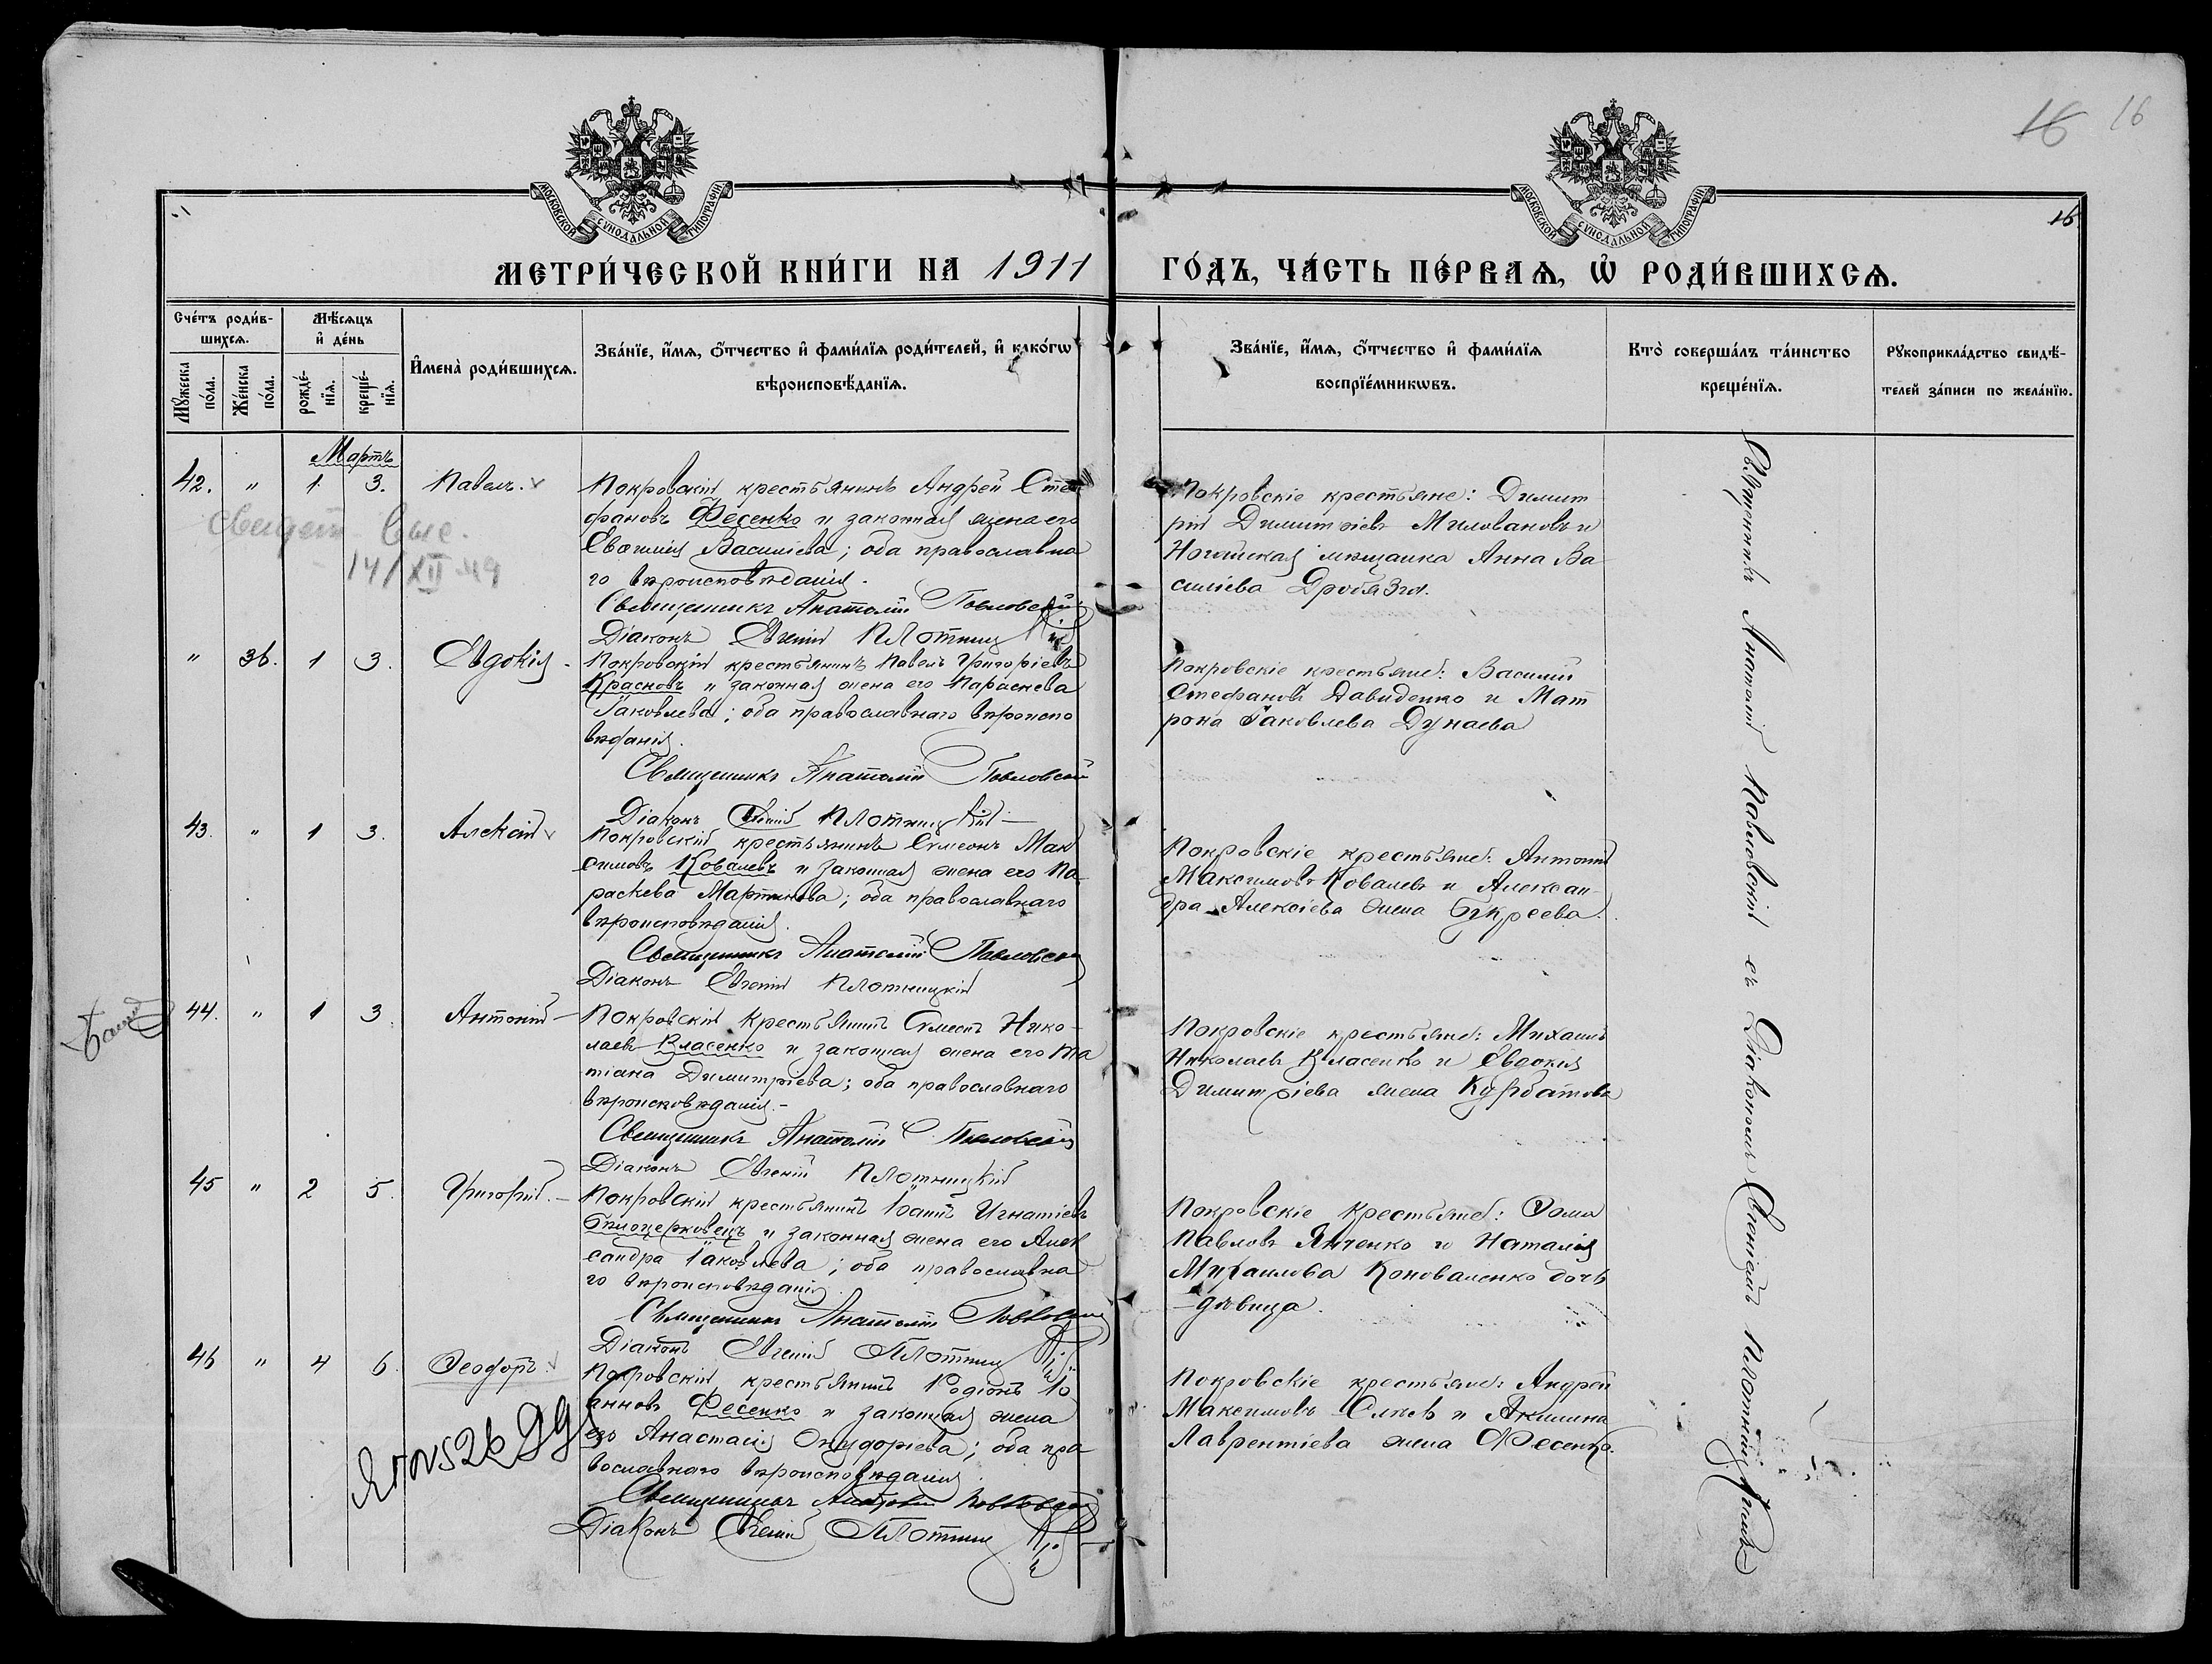 16 16
16
МОСКОВСКОЙ СѴНОДАЛЬНОЙ ТИПОГРАФІИ
МОСКОВСКОЙ СѴНОДАЛЬНОЙ ТИПОГРАФІИ
МЕТРИ́ЧЕСКОЙ КНИ́ГИ НА 1911 ГО́ДЪ, ЧА́СТЬ ПЕ́РВАѦ, Ѽ РОДИ́ВШИХСѦ.
Сче́тъ роди́в-
шихсѧ.
Мꙋ́жеска по́ла.
Же́нска по́ла.
Мѣ́сѧцъ
и҆ де́нь
рожде́-
нїѧ.
креще́-
нїѧ.
И҆мена̀ роди́вшихсѧ.
Зва́нїе, и҆́мѧ, ѻ҆́тчество и҆ фами́лїѧ роди́телей, и҆ како́гѡ
вѣроисповѣ́данїѧ.
Зва́нїе, и҆́мѧ, ѻ҆́тчество и҆ фами́лїѧ
воспрїе́мникѡвъ.
Кто̀ соверша́лъ та́инство
креще́нїѧ.
Рꙋкоприкла́дство свидѣ́-
телей за́писи по жела́нїю.
Мартъ
42. " 1 3. Павелъ.
Покровскій крестьянинъ Андрей Сте
фановъ Фесенко и законная жена его
Евѳимія Василіева; оба православна
го вѣроисповѣданія.
Священникъ Анатолій Павловскій
Діаконъ Евгеній Плотницкій
Покровскіе крестьяне: Димит
рій Димитріевъ Миловановъ и
Ногайская мѣщанка Анна Ва
силіева Дробязго.
14/XII 49
" 36. 1 3. Евдокія
Покровскій крестьянинъ Павелъ Григоріевъ
Красновъ и законная жена его Параскева
Іаковлева; оба православнаго вѣроиспо
вѣданія.
Священникъ Анатолій Павловскій
Діаконъ Евгеній Плотницкій
Покровскіе крестьяне: Василій
Стефановъ Давиденко и Мат
рона Іаковлева Дунаева
43. " 1 3. Алексій
Покровскій крестьянинъ Симеонъ Мак
симовъ Ковалевъ и законная жена его Па
раскева Мартинова; оба православнаго
вѣроисповѣданія.
Священникъ Анатолій Павловскій
Діаконъ Евгеній Плотницкій
Покровскіе крестьяне: Антоній
Максимовъ Ковалевъ и Алексан-
дра Алексіева жена Букреева.
44. " 1 3. Антоній
Покровскій крестьянинъ Симеонъ Нико-
лаевъ Власенко и законная жена его Та
тіана Димитріева; оба православнаго
вѣроисповѣданія.
Священникъ Анатолій Павловскій
Діаконъ Евгеній Плотницкій
Покровскіе крестьяне: Михаилъ
Николаевъ Власенко и Евдокія
Димитріева жена Курбатова
45 " 2 5. Григорій.
Покровскій крестьянинъ Іоаннъ Игнатіевъ
Бѣлоцерковецъ и законная жена его Алек
сандра Іаковлева; оба православна
го вѣроисповѣданія.
Священникъ Анатолій Павловскій
Діаконъ Евгеній Плотницкій
Покровскіе крестьяне: Ѳома
Павловъ Янченко и Наталія
Михаилова Коноваленко дочь
-дѣвица.
46 " 4 6. Ѳеодоръ.
Покровскій крестьянинъ Родіонъ Іо
анновъ Фесенко и законная жена
его Анастасія; оба пра
вославнаго вѣроисповѣданія
Священникъ Анатолій Павловскій
Діаконъ Евгеній Плотницкій
Покровскіе крестьяне: Андрей
Максимовъ и Акилина
Лаврентіева жена Фесенко.
Священникъ Анатолій Павловскій съ Діакономъ Евгеніемъ Плотницкимъ